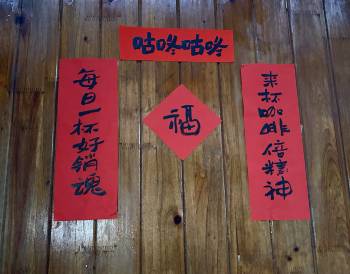 咕咚咕咚
来杯咖啡倍精神
福
每日一杯好销魂